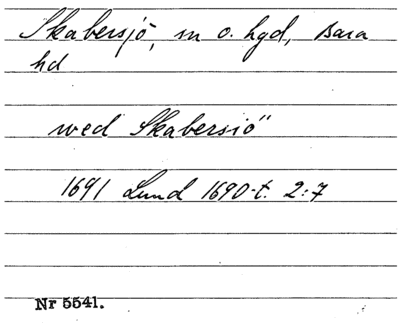 Skabersjö, sn o. hgd, Bara
hd
wed Skabersiö"
1691 Lund 1690-t. 2:7
Nr 5541.